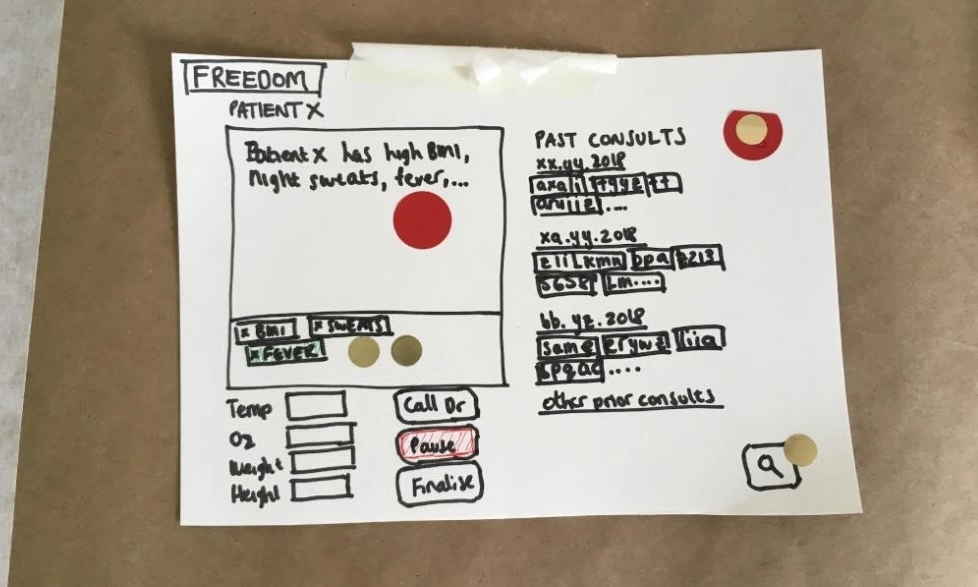 FREEDOM
PATIENT X
Patient X has high BMI,
night sweats, fever,...
x BMI x SWEATS
x FEVER
Temp
O2
Weight
Height
Call Dr
Pause
Finalise
PAST CONSULTS
xx.yy.2018
....
xa.yy.2018
zll Lkmn bpa
5658 Lm....
bb.yz.2018
same erywz
....
other prior consults